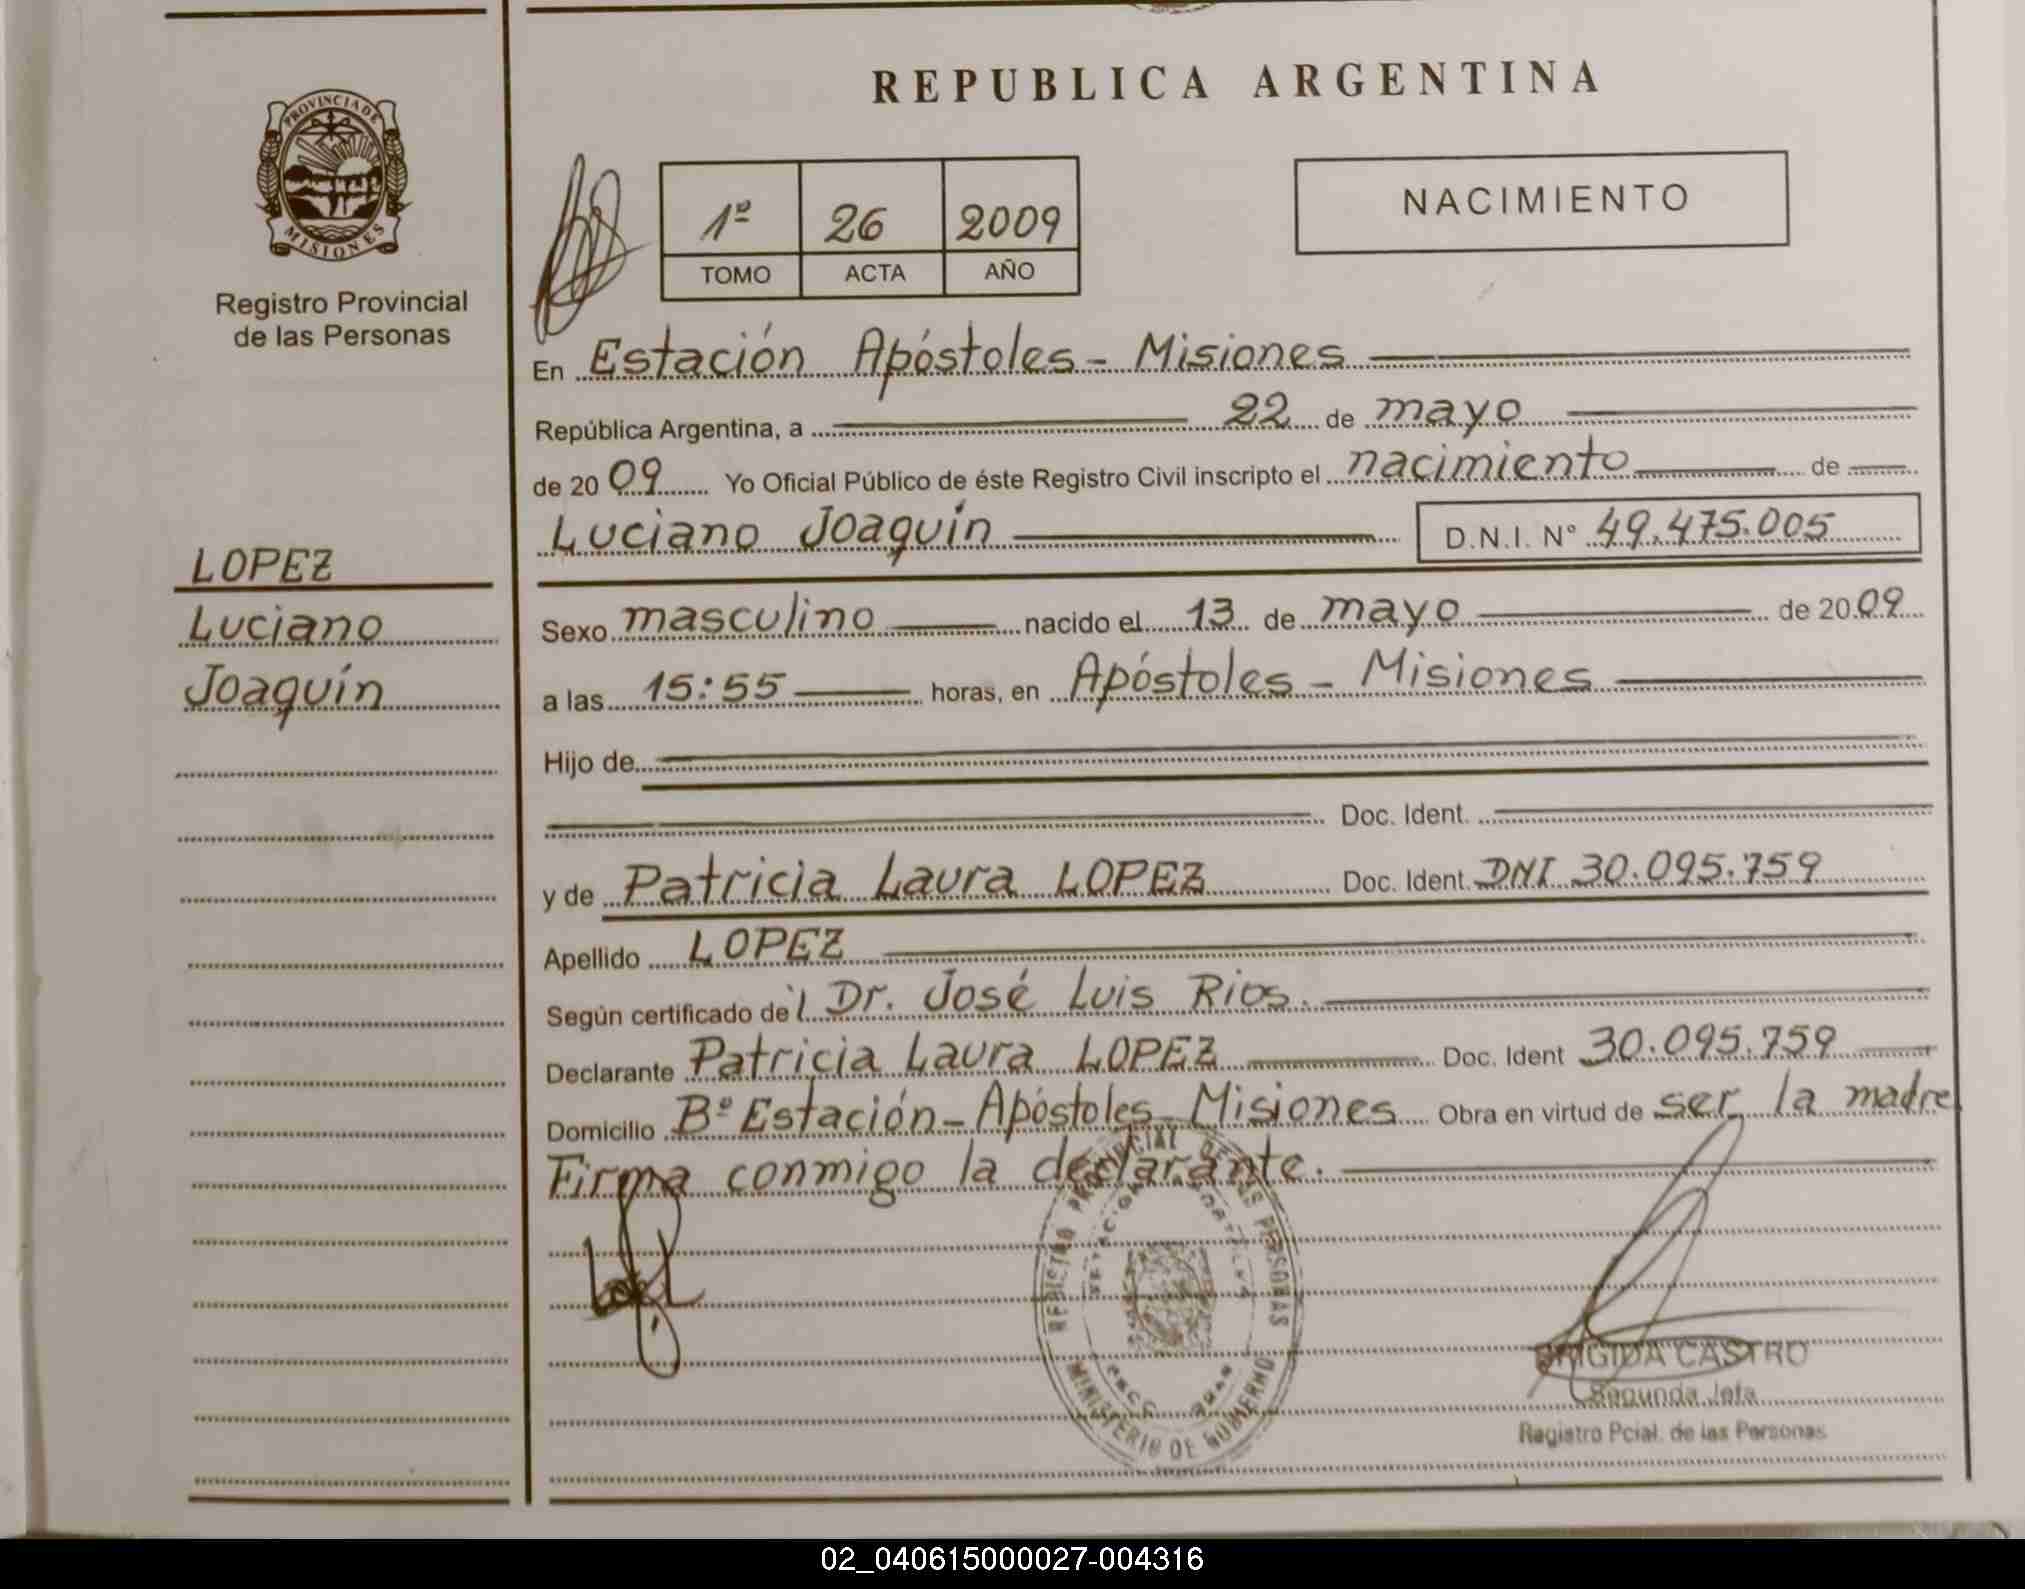 REPUBLICA ARGENTINA
PROVINCIA DE
MISIONES
Registro Provincial
de las Personas
1º 26 2009
TOMO ACTA AÑO
NACIMIENTO
En Estación Apóstoles - Misiones
República Argentina, a 22 de mayo
de 2009 Yo Oficial Público de éste Registro Civil inscripto el nacimiento de
Luciano Joaquín D.N.I. Nº 49.475.005
LOPEZ
Luciano
Joaquín
Sexo masculino nacido el 13 de mayo de 2009
a las 15:55 horas, en Apóstoles - Misiones
Hijo de
Doc. Ident.
y de Patricia Laura LOPEZ Doc. Ident. DNI 30.095.759
Apellido LOPEZ
Según certificado del Dr. José Luis Rios.
Declarante Patricia Laura LOPEZ Doc. Ident 30.095.759
Domicilio Bº Estación - Apóstoles - Misiones Obra en virtud de ser la madre
Firma conmigo la declarante.
REGISTRO PROVINCIAL DE LAS PERSONAS
MINISTERIO DE GOBIERNO
BRIGIDA CASTRO
Segunda Jefa
Registro Pcial. de las Personas
02_040615000027-004316